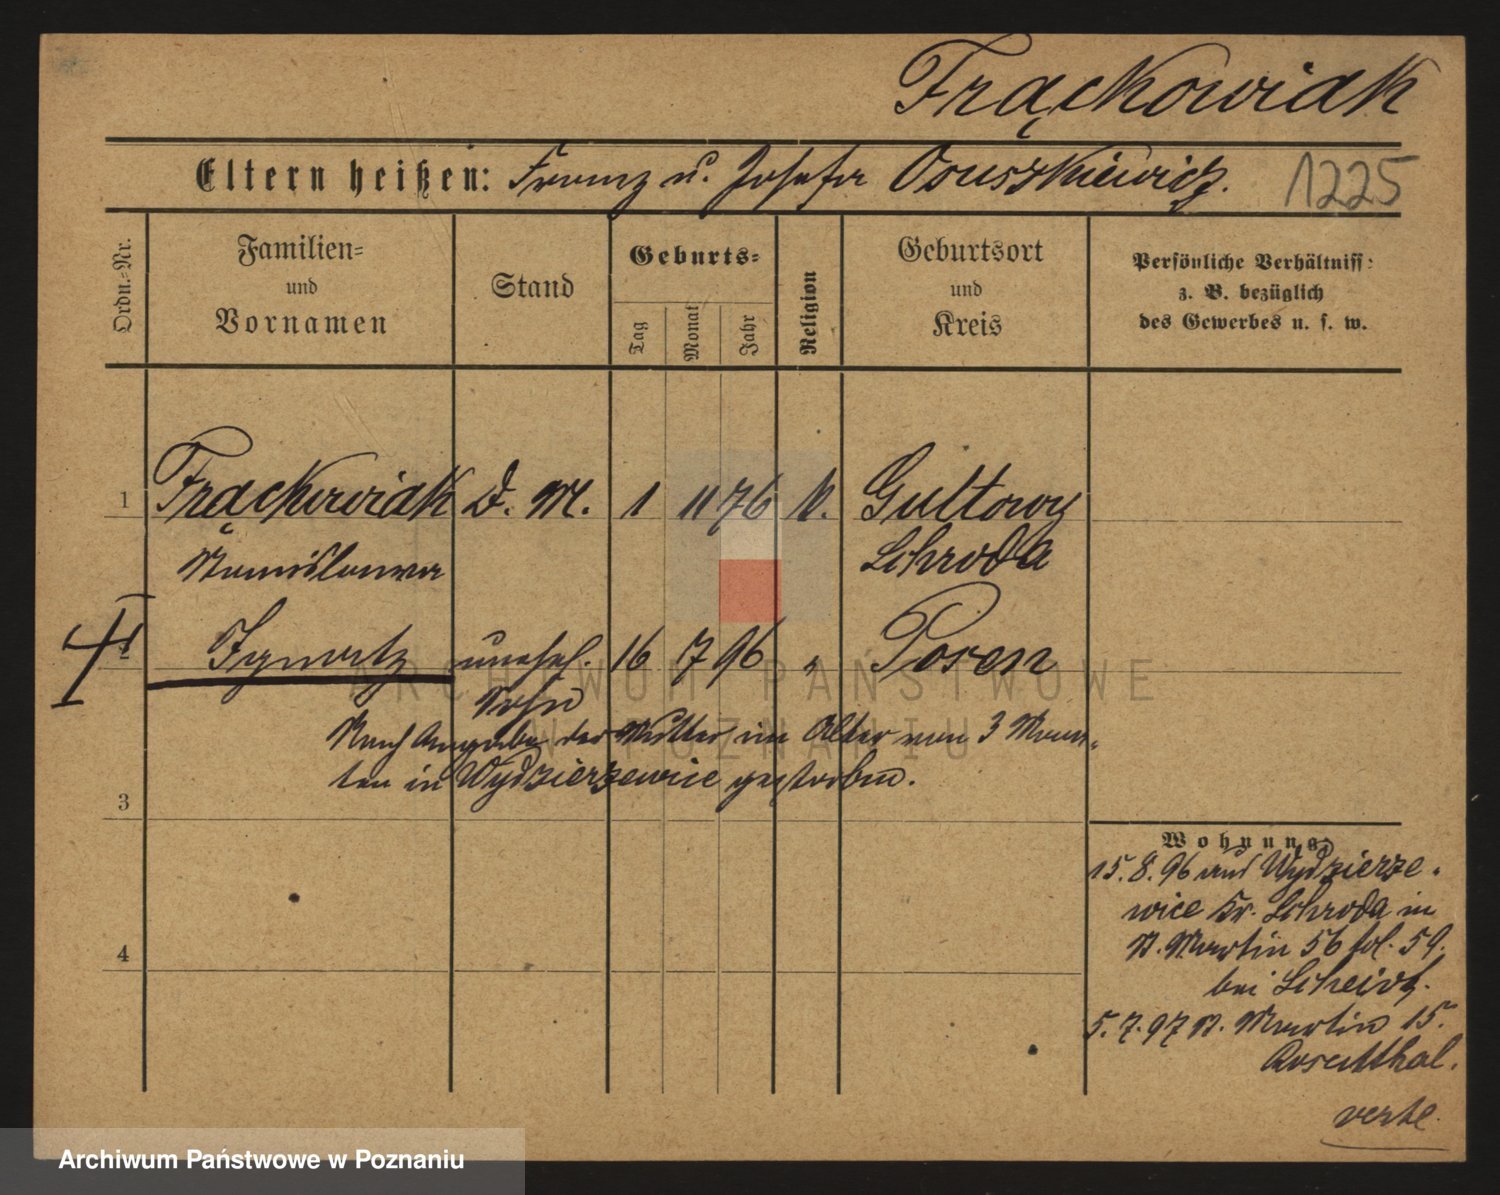 Frąckowiak
Eltern heißen: Franz u. Josefa Osuszkiewicz.
1225
Ordn.-Nr.
Familien-
und
Vornamen
Stand
Geburts-
Tag
Monat
Jahr
Religion
Geburtsort
und
Kreis
Persönliche Verhältniss:
z. B. bezüglich
des Gewerbes u. s. w.
1 Frąckowiak D. M. 1 11 76 k. Gultowy
Stanislawa Schroda
2 Ignatz unehel. 16 7 96 " Posen
Sohn
Nach Angabe der Mutter im Alter von 3 Mona-
ten in Wydzierzewice gestorben.
3
4
Wohnung
15.8.96 aus Wydzierze-
wice Kr. Schroda in
St. Martin 56 fol. 59.
bei
5.7.97 St. Martin 15.
Rosenthal.
verte.
ARCHIWUM PAŃSTWOWE
W POZNANIU
Archiwum Państwowe w Poznaniu